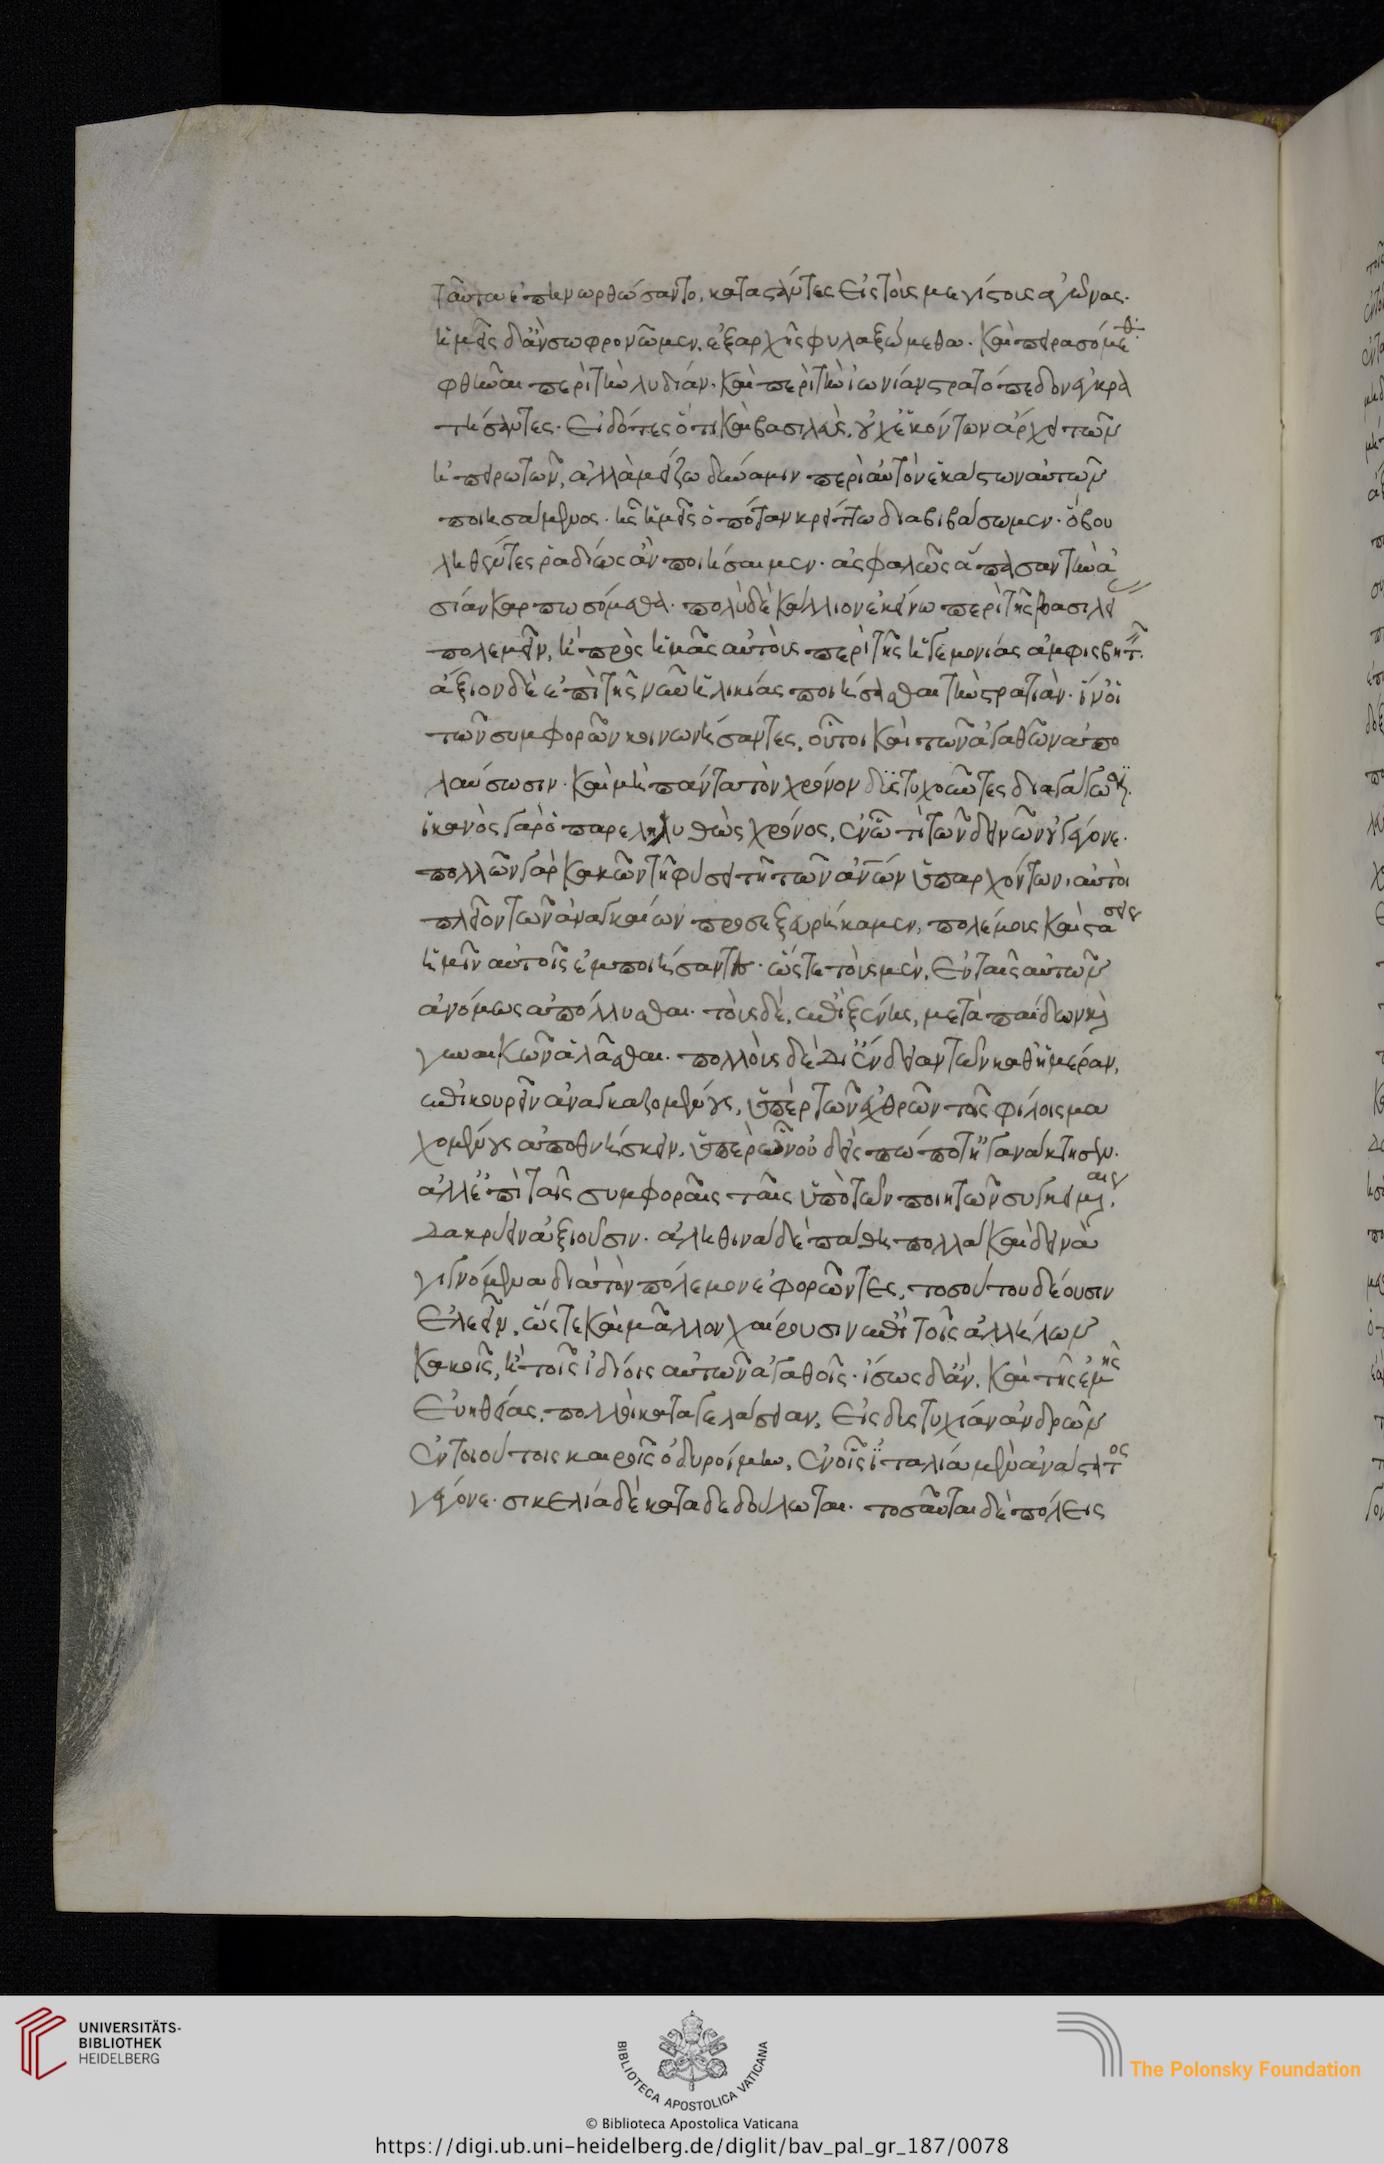 ταῦτα ἐπηνωρθώσαντο, καταστάντες εἰς τοὺς μεγίστους ἀγῶνας.
ἡμεῖς δἂν σωφρονῶμεν, ἐξαρχῆς φυλαξώμεθα. καὶ πειρασόμεθα
φθῆναι περὶ τὴν λυδίαν. καὶ περὶ τὴν ἰωνίαν στρατόπεδον ἐγκρα
τήσαντες. εἰδότες ὅτι καὶ βασιλεὺς, οὐχ ἑκόντων ἄρχει τῶν
ἠπειρωτῶν, ἀλλὰ μείζω δύναμιν περὶ αὑτὸν ἑκάστων αὐτῶν
ποιησάμενος. ἧς ἡμεῖς ὁπόταν κρείττω διαβιβάσωμεν. ὃ βου
ληθέντες ῥαδίως ἂν ποιήσαιμεν. ἀσφαλῶς ἅπασαν τὴν ἀ
σίαν καρπωσόμεθα. πολὺ δὲ κάλλιον ἐκείνω περὶ τῆς βασιλεί
πολεμεῖν, ἢ πρὸς ἡμᾶς αὐτοὺς περὶ τῆς ἡγεμονίας ἀμφισβητεῖν.
ἄξιον δὲ ἐπὶ τῆς νῦν ἡλικίας ποιήσασθαι τὴν στρατιὰν. ἵν οἱ
τῶν συμφορῶν κοινωνήσαντες, οὗτοι καὶ τῶν ἀγαθῶν ἀπο
λαύσωσιν. καὶ μὴ πάντα τὸν χρόνον δυστυχοῦντες διαγάγωσιν.
ἱκανὸς γὰρ ὁ παρεληλυθὼς χρόνος, ἐν ὧ τί τῶν δεινῶν οὐ γέγονε.
πολλῶν γὰρ κακῶν τῆ φύσει τῆ τῶν ἀνῶν ὑπαρχόντων, αὐτοὶ
πλείον τῶν ἀναγκαίων προσεξευρήκαμεν, πολέμους καὶ στάσεις
ἡμῖν αὐτοῖς ἐμποιήσαντες. ὥστε τοὺς μὲν, ἐν ταῖς αὐτῶν
ἀνόμως ἀπόλλυσθαι. τοὺς δέ, ἐπὶ ξένης, μετὰ παίδων καὶ
γυναικῶν ἀλᾶσθαι. πολλοὺς δὲ δι ἔνδειαν τῶν καθ ἡμέραν,
ἐπικουρεῖν ἀναγκαζομένους, ὑπὲρ τῶν ἐχθρῶν τοῖς φίλοις μα
χομένους ἀποθνήσκειν, ὑπὲρ ὧν οὐδεὶς πώποτ ἠγανάκτησεν.
ἀλλ ἐπὶ ταῖς συμφοραῖς ταῖς ὑπὸ τῶν ποιητῶν συγκειμέναις,
δακρύειν ἀξιοῦσιν. ἀληθινὰ δὲ πάθη πολλὰ καὶ δεινὰ
γιγνόμενα διὰ τὸν πόλεμον ἐφορῶντες, τοσούτου δέουσιν
ἐλεεῖν, ὥστε καὶ μᾶλλον χαίρουσιν ἐπὶ τοῖς ἀλλήλων
κακοῖς, ἢ τοῖς ἰδίοις αὐτῶν ἀγαθοῖς. ἴσως δἂν, καὶ τῆς ἐμῆς
εὐηθείας, πολλοὶ καταγελάσειαν, εἰ δυστυχίαν ἀνδρῶν
ἐν τοιούτοις καιροῖς ὀδυροίμην, ἐν οἷς ἰταλία μὲν ἀνάστατος
γέγονε. σικελία δὲ καταδεδούλωται. τοσαῦται δὲ πόλεις
UNIVERSITÄTS-
BIBLIOTHEK
HEIDELBERG
BIBLIOTECA APOSTOLICA VATICANA
The Polonsky Foundation
© Biblioteca Apostolica Vaticana
https://digi.ub.uni-heidelberg.de/diglit/bav_pal_gr_187/0078